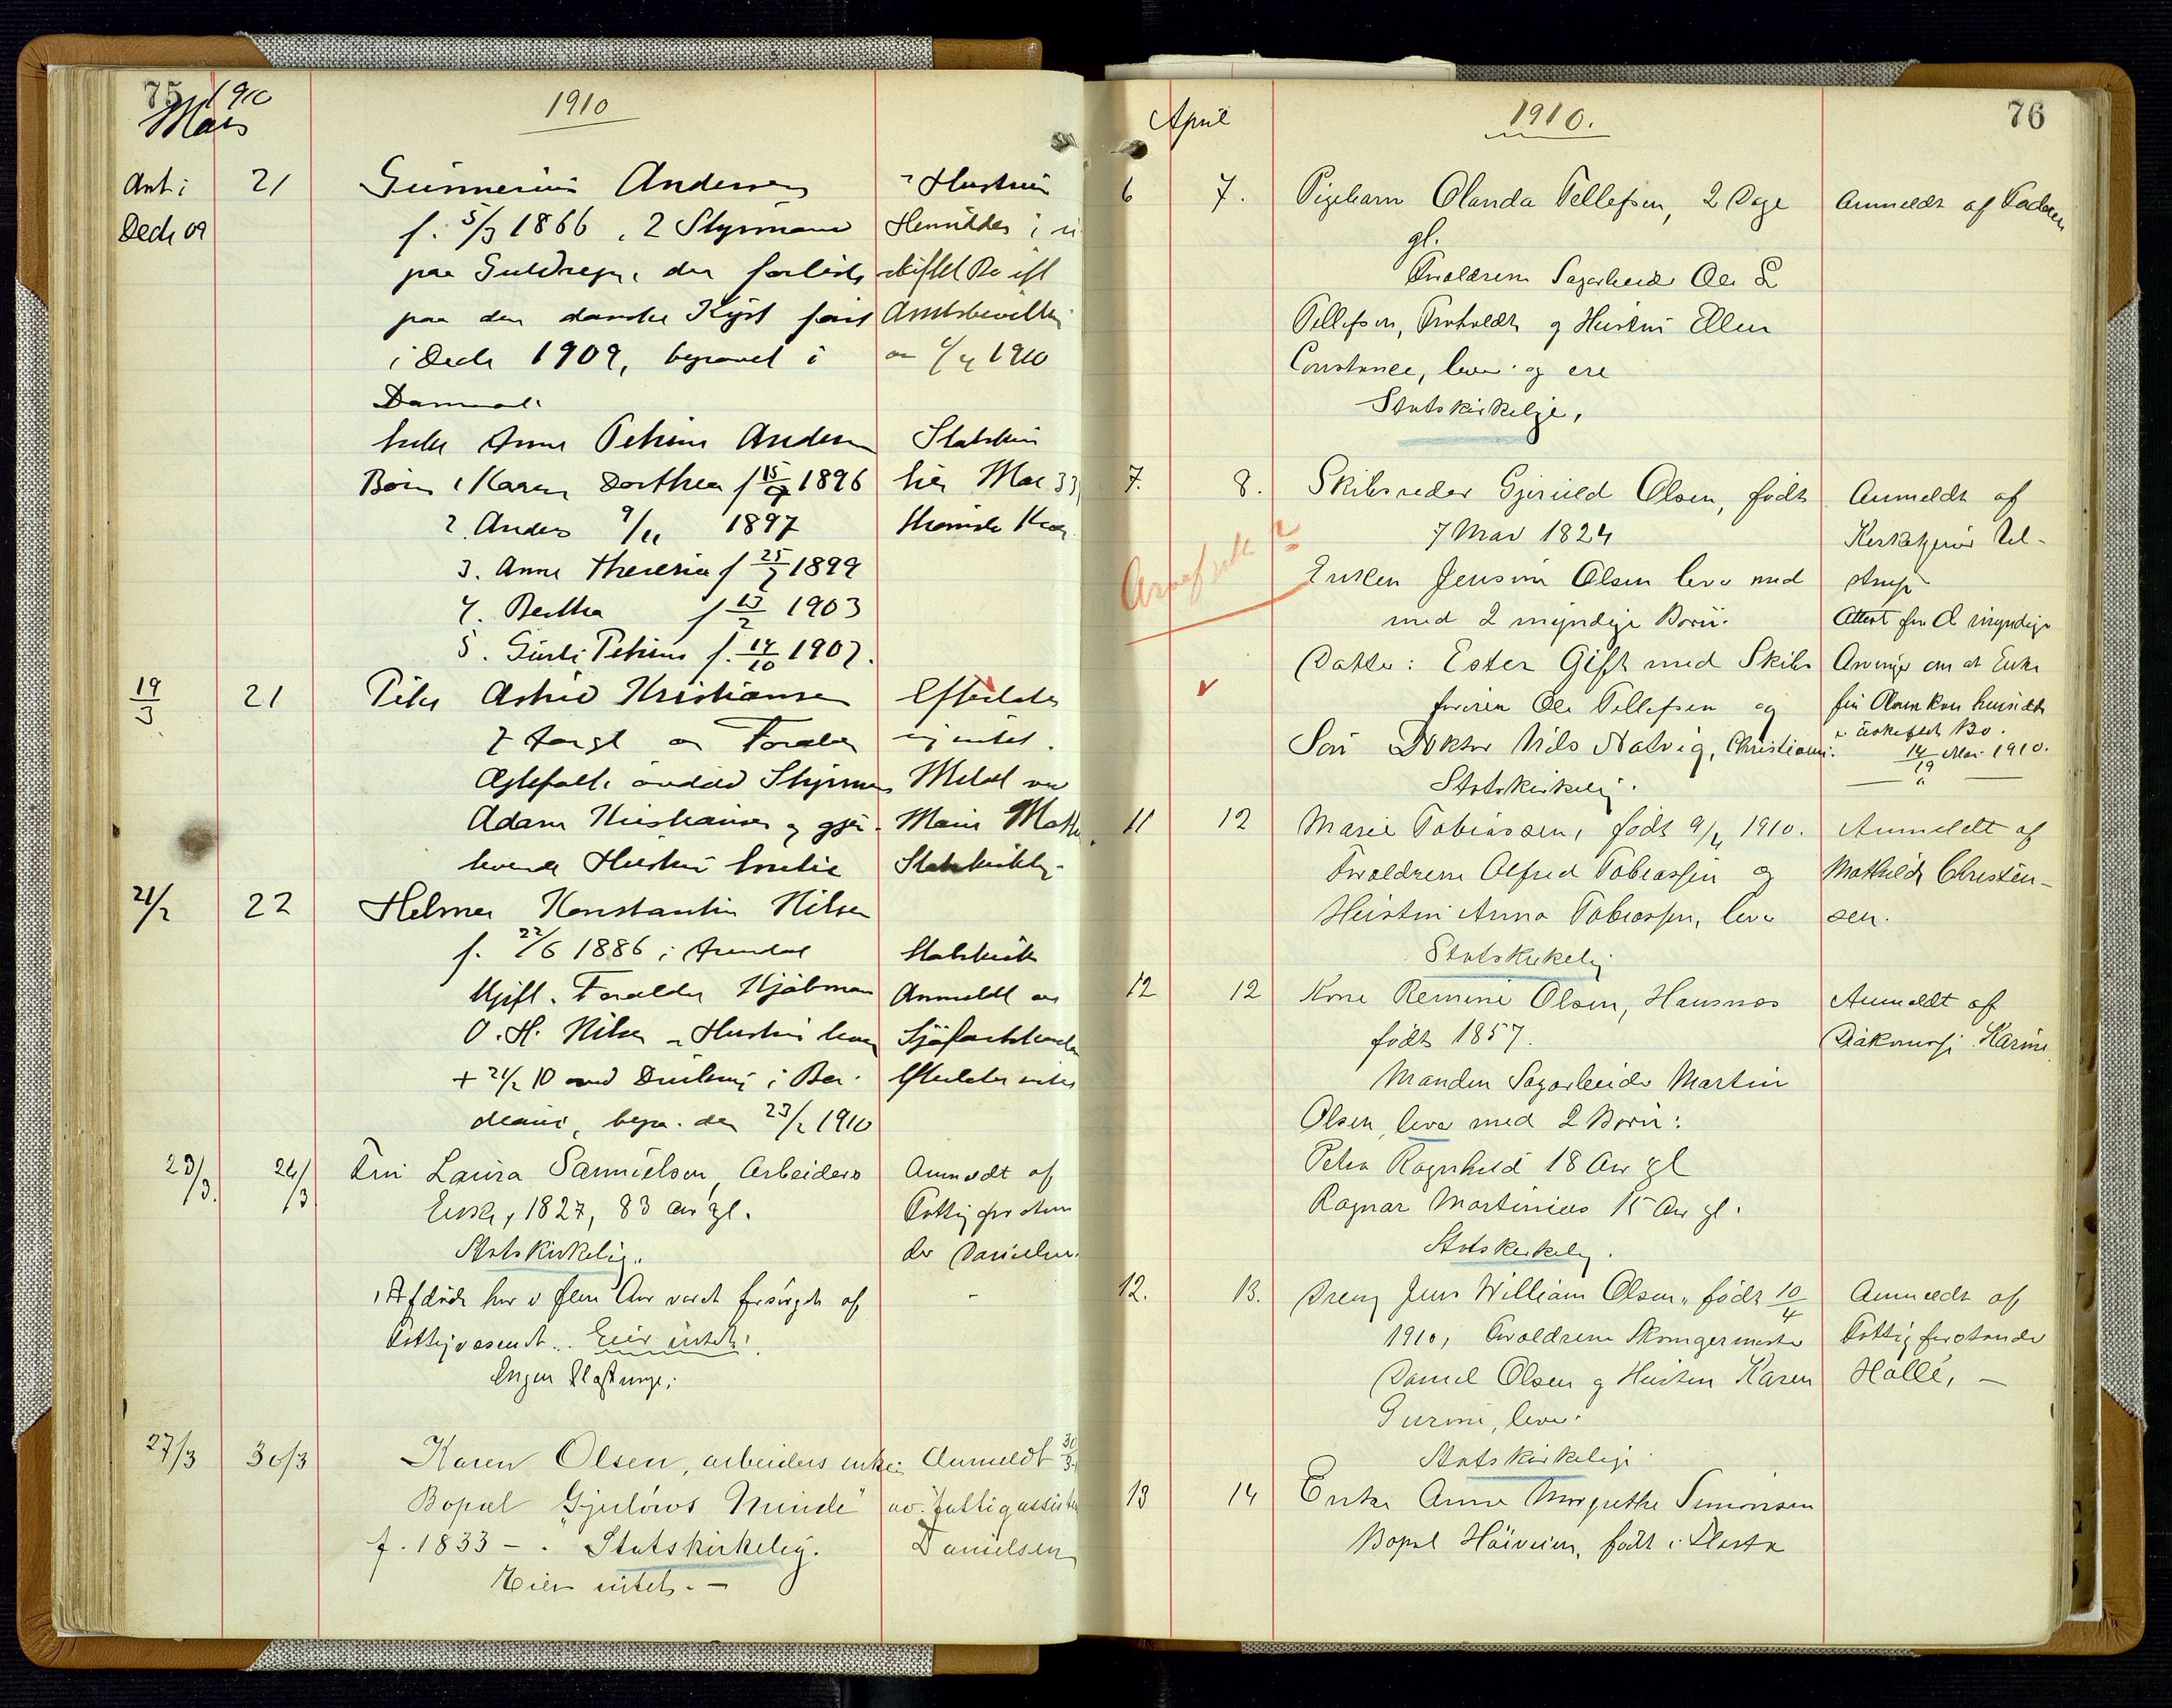 75
1910
Mars
1910
Ant i
Decb 09
21
Gunnerius Andersen
f. 5/3 1866, 2 Styrmand
paa Guldregn, der forliste
paa den danske Kyst først
i Decb 1909, begravet i
Danmark
Enke Anne Petrine Andersen
Børn 1 Karen Dorthea f 15/9 1896
2. Anders 9/11 1897
3. Anne Theresia f 25/7 1899
4. Bertha f 13/2 1903
5. Petrine f. 14/10 1907.
Hustru
Hensidder i
skiftet Bo ifl
Amtsbevilling
1910
19/3
21
Pike Astrid Kristiansen
Forældre
Ægtefolk Styrmand
Adam Kristiansen og
levende Hustru Emilie
Efterlader
intet.
Meldt
Statskirkelig
21/2
22
Helmer Konstantin Nilsen
f. 22/6 1886 i Arendal
Ugift. Forældre
O. H. Nilsen Hustru lever
+ 21/2 10 ved Drukning i Bor-
deaux, begr. den 23/2 1910
Statskirk
Anmeldt av
Efterlader intet
23/3.
24/3
Fru Laura Samuelsen, Arbeiders
Enke, 1827, 83 Aar gl.
Statskirkelig.
Afdøde har i flere Aar været forsørget af
Fattigvæsenet. Eier intet.
Ingen
Anmeldt af
Fattigforstan
der Danielsen.
27/3
30/3
Karen Olsen, arbeiders enke
Bopæl "Gjeløws Minde"
f. 1833 - . Statskirkelig.
Eier intet. -
Anmeldt 30/3
av fattigassistent
Danielsen
April
1910.
76
6
7.
Pigebarn Olanda Tellefsen, 2 Dage
gl.
Forældrene Sagarbeider Ole L
Tellefsen, og Hustru Ellen
Constance, lever og ere
Statskirkelige,
Anmeldt af Faderen
7.
8.
Skibsreder Gjeruld Olsen, født
7 Mar 1824
Enken Jensine Olsen lever med
med 2 myndige Børn.
Datter: Ester Gift med Skibs
føreren Ole Tellefsen og
Søn Doktor Nils Natvig, Christiania.
Statskirkelig.
Anmeldt af
Attest fra de myndige
Arvinger om at Enke
fru Olsen kan hensidde
i uskiftet Bo.
1910.
11
12
Marie Tobiassen, født 9/4 1910.
Forældrene Alfred Tobiassen og
Hustru Anna Tobiassen, lever
Statskirkelig
Anmeldt af
Mathilde Christen-
sen.
12
12
Kone Remine Olsen,
født 1857.
Manden Sagarbeider Martin
Olsen lever med 2 Børn:
Petra Ragnhild 18 Aar gl
Ragnar Martinius 15 Aar gl.
Statskirkelig.
Anmeldt af
Diakonisse Karine
12.
13.
Dreng Jens William Olsen, født 10/4
1910, Forældrene Skomagermester
Daniel Olsen og Hustru Karen
Gurine, lever.
Statskirkelige
Anmeldt af
Fattigforstander
Halle, -
13
14
Enke Anne Margrethe Simonsen
Bopæl Høiveien, født i